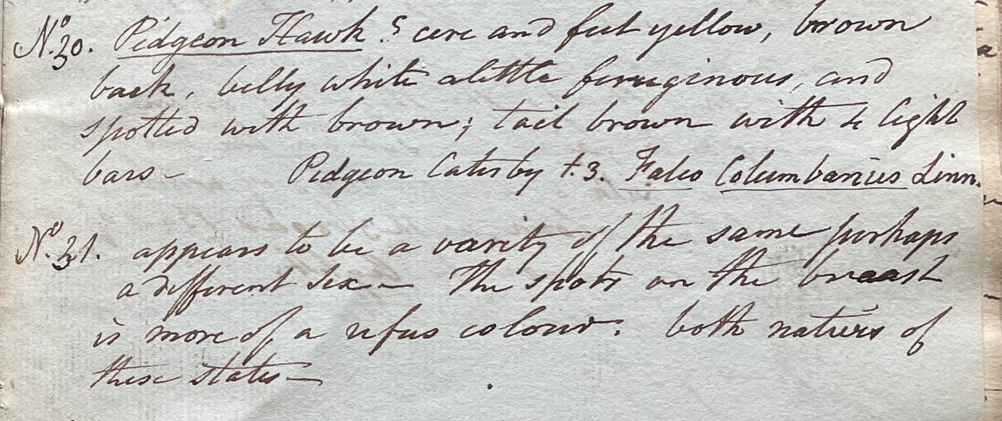 No. 30. Pidgeon Hawk. cere and feet yellow, brown
back, belly white alittle feruginous, and
spotted with brown; tail brown with 4 light
bars - Pidgeon Catesby t. 3. Falco Columbarius Linn.
No. 31. appears to be a varity of the same perhaps
a different sex - The spots on the breaast
is more of a rufus colour. both natives of
these states -